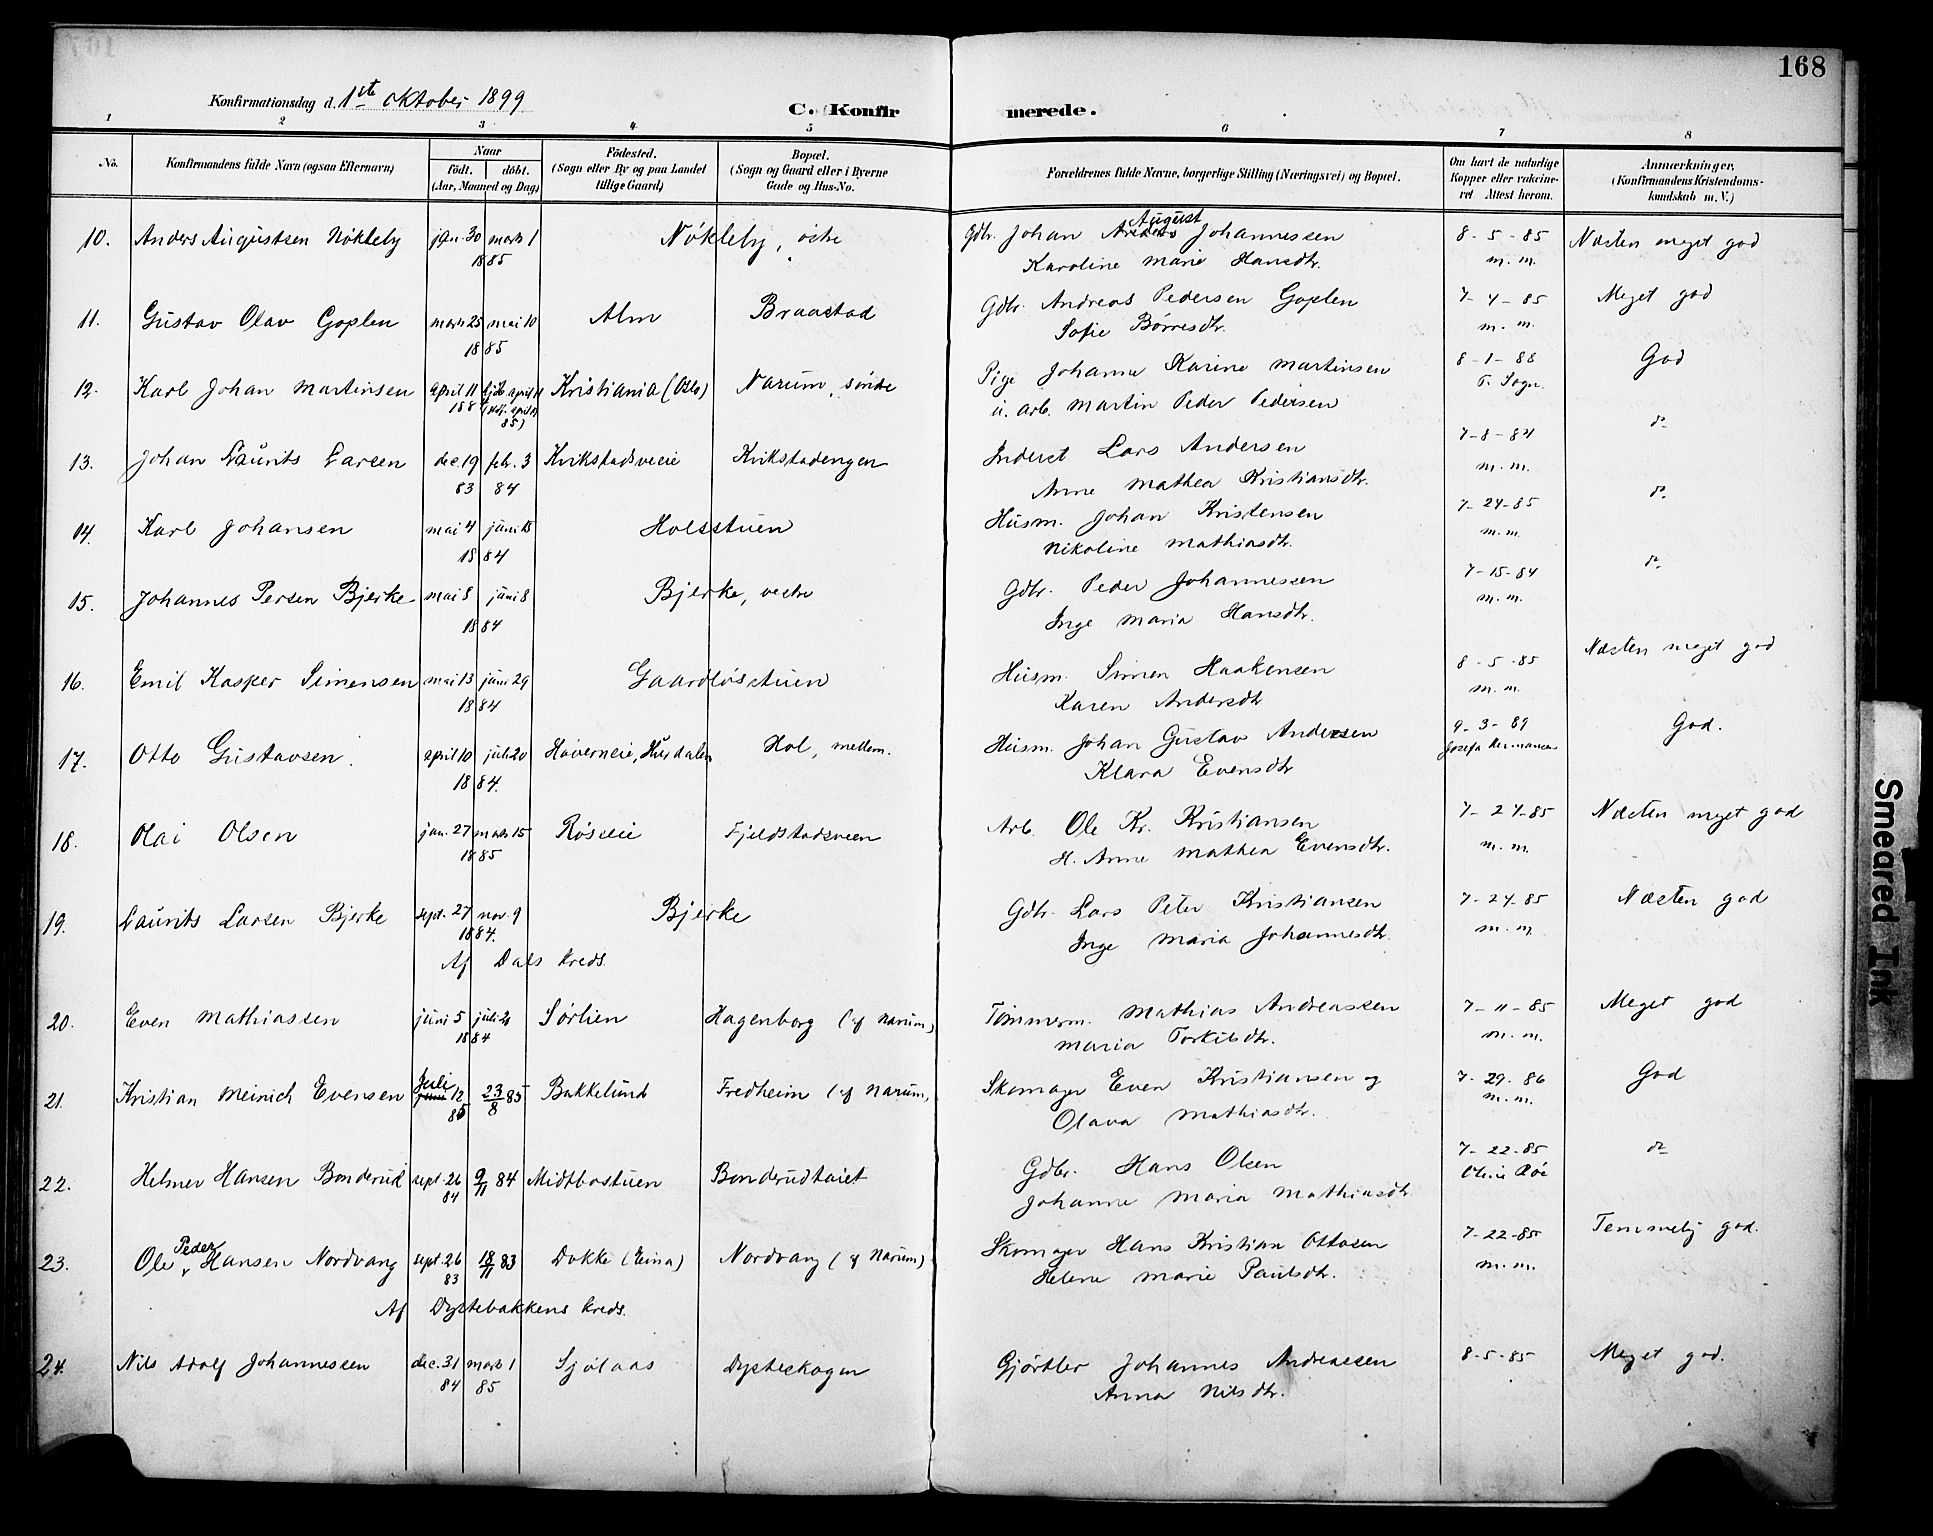 168
Konfirmationsdag d. 1ste oktober 1899
C. Konfirmerede.
1 2 3 4 5 6 7 8
No. Konfirmandens fulde Navn (ogsaa Efternavn) Naar födt. döbt. (Aar, Maaned og Dag) Födested. (Sogn eller By og paa Landet tillige Gaard) Bopæl. (Sogn og Gaard eller i Byerne Gade og Hus-No.) Forældrenes fulde Navne, borgerlige Stilling (Næringsvei) og Bopæl. Om havt de naturlige Kopper eller vakcineret. Attest herom. Anmærkninger. (Konfirmandens Kristendomskundskab m. V.)
10. Anders Augustsen Nökleby jan. 30 marts 1 Nökleby, östre Gdbr. Johan August Johannessen 8-5-85 Næsten meget god
1885 Karoline Marie Hansdtr. m. m.
11. Gustav Olav Goplen marts 25 mai 10 Alm Braastad Gdbr. Andreas Pedersen Goplen 7-4-85 Meget god
1885 Sofie Börresdtr. m. m.
12. Karl Johan Martinsen april 11 Kristiania (Oslo) Narum, söndre Pige Johanne Karine Martinsen 8-1-88 God
u. arb. Martin Peder Pedersen T. Sogn.
85)
13. Johan Laurits Larsen dec. 19 febr. 3 Kvikstadsveie Kvikstadengen Inderst Lars Andersen 7-8-84 do
83 84 Anne Mathea Kristiansdtr. m. m.
14. Karl Johansen mai 4 juni 15 Holsstuen Husm. Johan Kristensen 7-24-85 do
1884 Nikoline Mathiasdtr. m. m.
15. Johannes Persen Bjerke mai 8 juni 8 Bjerke, vestre Gdbr. Peder Johannessen 7-15-84 do
1884 Inge Maria Hansdtr. m. m.
16. Emil Kasper Simensen mai 13 juni 29 Gaardlösstuen Husm. Simen Haakensen 8-5-85 Næsten meget god
1884 Karen Andersdtr. m. m.
17. Otto Gustavsen. april 10 juli 20 Höverneie, Hurdalen Hol, mellem. Husm. Johan Gustav Andersen 9-3-89 God.
1884. Klara Evensdtr Josefa Hermansen
18. Olai Olsen jan. 27 marts 15 Röseie Fjeldstadsveen Arb. Ole Kr. Kristiansen 7-27-85 Næsten meget god
1885 H. Anne Mathea Evensdtr. m. m.
19. Laurits Larsen Bjerke sept. 27 nov. 9 Bjerke Gdbr. Lars Peter Kristiansen 7-24-85 Næsten god
1884. Inge Maria Johannesdtr. m. m.
Af Dals kreds.
20. Even Mathiassen juni 5 juli 20 Sörlien Hagenborg (af Narum) Tömmerm. Mathias Andreassen 7-11-85 Meget god
1884 Maria Torkilsdtr. m. m.
21. Kristian Meinich Evensen juli juni 12 23/8 85 Bakkelund Fredheim (af Narum) Skomager Even Kristiansen og 7-29-86 God
85 Olava Mathiasdtr. m. m.
22. Helmer Hansen Bonderud sept. 26 9/11 84 Midtbostuen Bonderudtaiet Gdbr. Hans Olsen 7-22-85 do
84 Johanne Maria Mathiasdtr.
23. Ole Peder Hansen Nordvang sept. 26 18/11 83 Dokke (Eina) Nordvang (af Narum) Skomager Hans Kristian Ottosen 7-22-85 Temmelig god.
83 Helene Marie Paulsdtr. m. m.
Af Dystebakkens kreds.
24. Nils Adolf Johannessen dec. 31 marts 1 Sjölaas Dysteskogen Gjörtler Johannes Andreassen 8-5-85 Meget god.
84 85 Anna Nilsdtr.
Smeared Ink